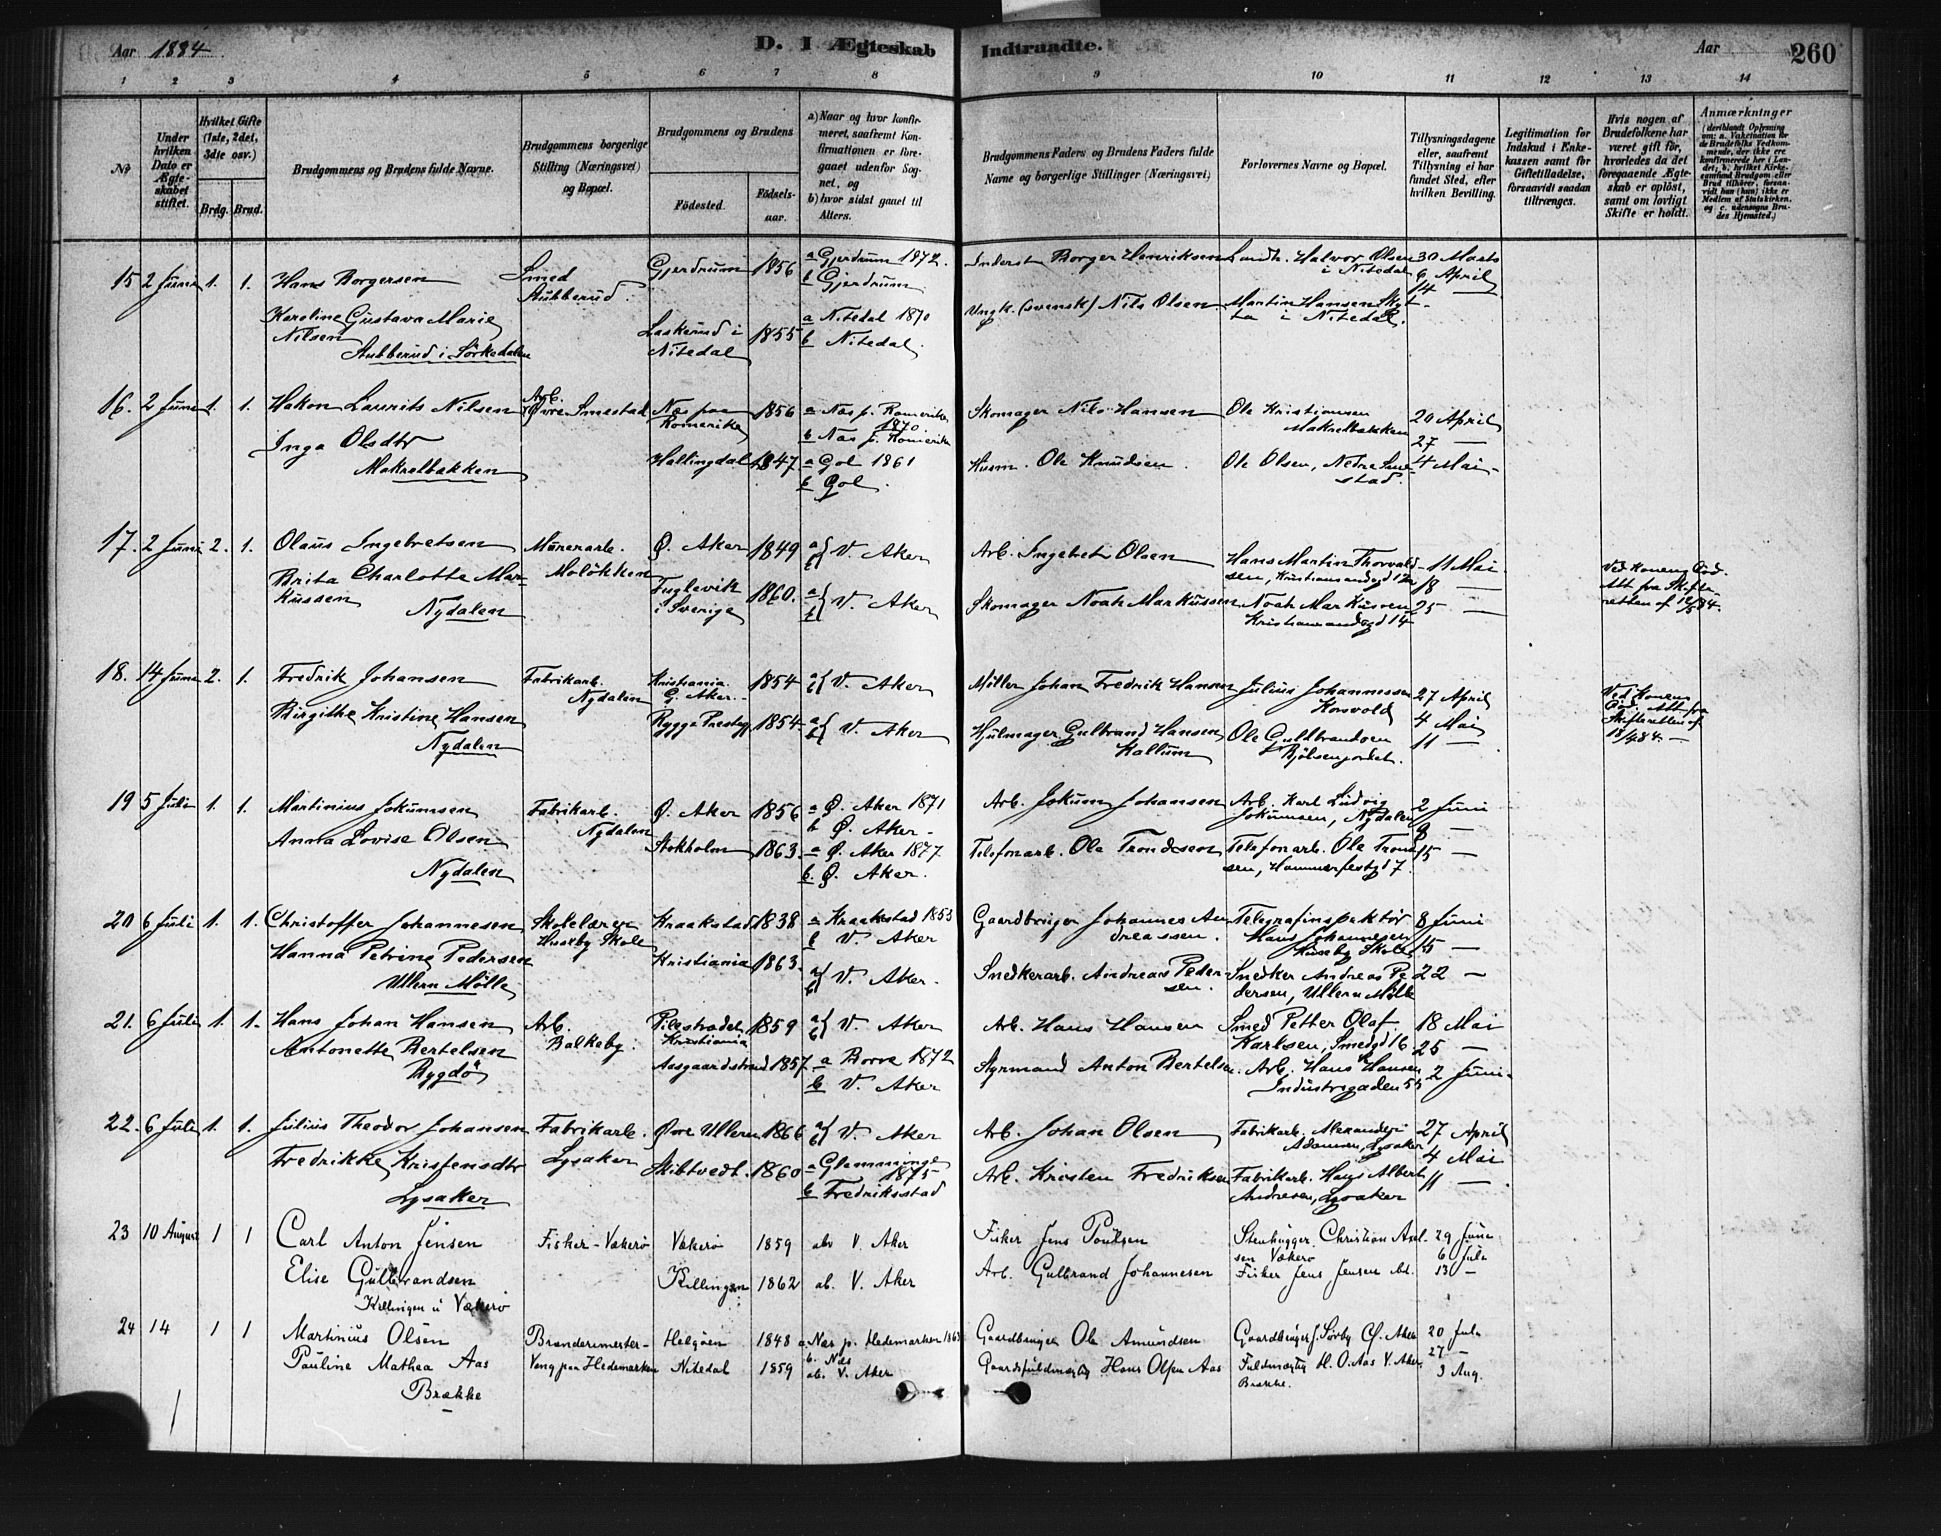 Aar 1884. D. I Ægteskab Indtraadte. Aar 260
1 2 3 4 5 6 7 8 9 10 11 12 13 14
No
Under hvilken Dato er Ægteskabet stiftet.
Hvilket Gifte (1ste, 2det, 3die osv.)
Brdg. Brud.
Brudgommens og Brudens fulde Navne.
Brudgommens borgerlige Stilling (Næringsvei) og Bopæl.
Brudgommens og Brudens
Fødested. Fødselsaar.
a) Naar og hvor konfirmeret, saafremt Konfirmationen er foregaaet udenfor Sognet, og
b) hvor sidst gaaet til Alters.
Brudgommens Faders og Brudens Faders fulde Navne og borgerlige Stillinger (Næringsvei)
Forlovernes Navne og Bopæl.
Tillysningsdagene eller, saafremt Tillysning ei har fundet Sted, efter hvilken Bevilling.
Legitimation for Indskud i Enkekassen samt for Giftetilladelse, forsaavidt saadan tiltrænges.
Hvis nogen af Brudefolkene har været gift før, hvorledes da det foregaaende Ægteskab er opløst, samt om lovligt Skifte er holdt.
Anmærkninger (deriblandt Oplysning om: a. Vakcination for de Brudefolks Vedkommende, der ikke ere konfirmerede her i Landet; b. hvilket Kirkesamfund Brudgom eller Brud tilhører, forsaavidt han (hun) ikke er Medlem af Statskirken, og c. udensogns Brudes Hjemsted.)
15 2 Juni 1. 1. Hans Borgersen Smed Stubberud. Gjerdrum 1856 a Gjerdrum 1872. b Gjerdrum Inderst Borger Henriksen Landh. Halvor Olsen i Nitedal 30 Marts 6 April 14 —
Karoline Gustava Marie Nilsen Stubberud i Sörkedalen Laskerud i Nitedal 1855 a Nitedal 1870 b Nitedal Ungk. (svensk) Nils Olsen Martin Hansen Skytta i Nitedal.
16. 2 Juni 1. 1. Hakon Laurits Nilsen Arb. Övre Smestad Næs paa Romerike 1856 a Næs p. Romerike 1870 b Næs p. Romerike Skomager Nils Hansen Ole Kristiansen Makrelbakken 20 April 27 —
Inga Olsdtr Makrelbakken Hallingdal 1847 a Gol 1861 b Gol. Husm. Ole Knudsen. Ole Olsen, Nedre Smestad. 4 Mai
17. 2 Juni 2. 1. Olaus Ingebretsen Murerarb. Molökken Ø. Aker 1849 a b V. Aker Arb. Ingebret Olsen Hans Martin Thorvaldsen, Kristiansandgd 12 11 Mai 18 — Ved Konens Död. Att fra Skifteretten af 12/5 84.
Brita Charlotte Markussen Nydalen Fuglevik i Sverige 1860. a b V. Aker Skomager Noah Markussen Noah Markussen Kristiansandgd 14 25 —
18. 14 Juni 2. 1. Fredrik Johansen Fabrikarb. Nydalen Kristiania G. Aker 1854 a b V. Aker Møller Johan Fredrik Hansen Julius Johannessen Korsvold 27 April Ved Konens Död. Att fra Skifteretten af 18/4 84. —
Birgithe Kristine Hansen Nydalen Rygge Prestg 1854. a b V. Aker Hjulmager Gulbrand Hansen Kallum Ole Guldbrandsen Bjölsenjordet. 4 Mai 11 —
19 5 Juli 1. 1. Martinius Jokumsen Fabrikarb. Nydalen Ø. Aker 1856 a Ø. Aker 1871 b Ø. Aker Arb. Jokum Johansen Arb. Karl Ludvig Jokumsen, Nydalen 2 Juni 8 —
Anna Lovise Olsen Nydalen Stokholm 1863. a Ø. Aker 1877 b. Ø. Aker. Telefonarb. Ole Trondsen Telefonarb. Ole Trondsen, Hammerfestgd 7. 15 —
20 6 Juli 1. 1. Christoffer Johannesen Skolelærer Huseby Skole Kraakstad 1838 a Kraakstad 1853 b V. Aker Gaardbruger Johannes Andreassen. Telegrafinspektör Hans Johannesen Huseby Skole 8 Juni 15 —
Hanna Petrine Pedersen Ullern Mölle Kristiania 1863. a b V. Aker. Snedkerarb. Andreas Pedersen. Snedker Andreas Pedersen, Ullern Mölle 22 —
21. 6 Juli 1. 1. Hans Johan Hansen Arb. Balkeby. Pilestrædet Kristiania 1859 a b V. Aker Arb. Hans Hansen Smed Petter Olaf Karlsen, Smedgd 16. 18 Mai 25 —
Antonette Bertelsen Bygdö Aasgaardstrand 1857 a Borre 1872 b V. Aker Styrmand Anton Bertelsen. Arb. Hans Hansen Industrigaden 55 2 Juni
22. 6 Juli 1. 1. Julius Theodor Johansen Fabrikarb. Lysaker Øvre Ullern 1866 a b V. Aker Arb. Johan Olsen Fabrikarb. Alexander Adamsen, Lysaker 27 April 4 Mai
Fredrikke Kristensdtr Lysaker Skibtvedt. 1860 a Glemminge 1875 b Fredriksstad Arb. Kristen Fredriksen Fabrikarb. Hans Albert Andresen, Lysaker 11 —
23 10 August 1 1 Carl Anton Jensen Fisker - Vækerö Vækerö 1859 ab V. Aker Fisker Jens Poulsen Stenhugger Christian Axelsen Vækerö 29 Juni 6 Juli
Elise Gulbrandsen Killingen u Vækerö Killingen 1862 ab. V. Aker Arb. Gulbrand Johannesen Fisker Jens Jensen bd. 13 —
24 14 1 1 Martinius Olsen Brænderimester - Vang paa Hedemarken Helgöen 1848 a Næs p. Hedemarken 1863 b. Næs Gaardbruger Ole Amundsen Gaardbruger J. Sörby Ø. Aker 20 Juli 27 —
Pauline Mathea Aas Brække Nitedal 1859 ab. V. Aker Gaardsfuldmægtig Hans Olsen Aas Fuldmægtig H. O. Aas V. Aker, Brække. 3 Aug.